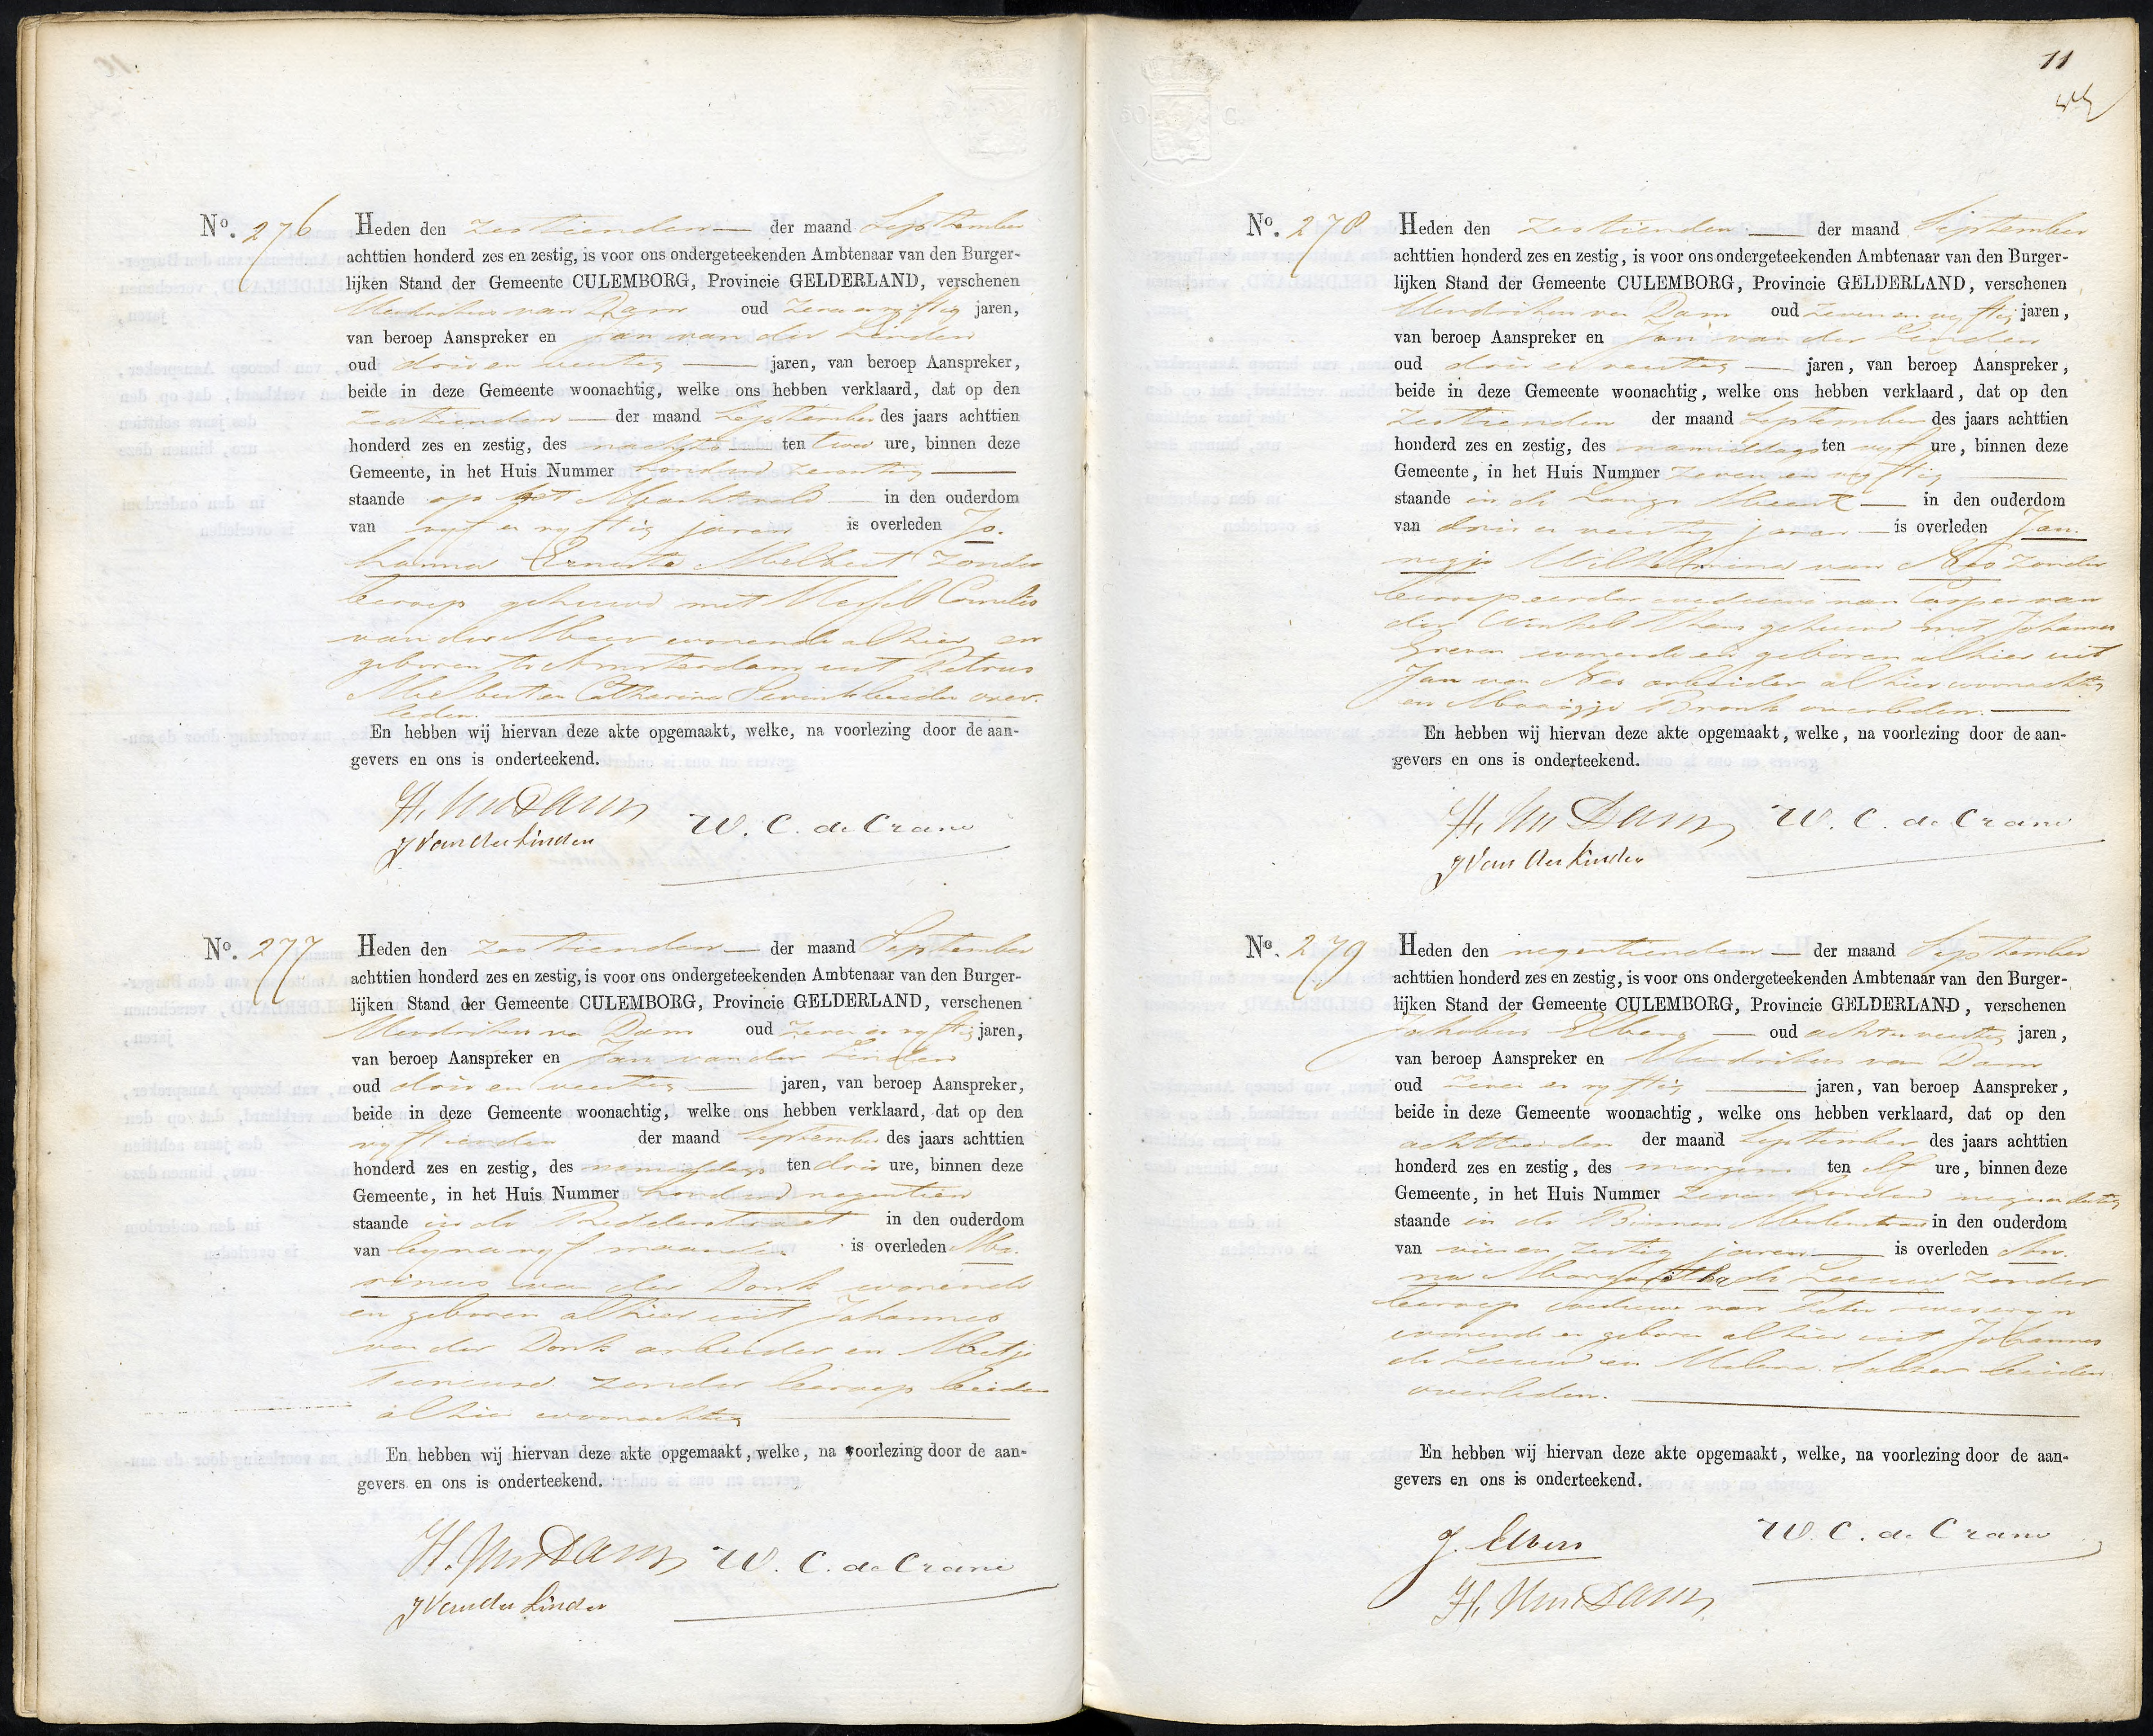 N°. 276 Heden den zestienden der maand September
achttien honderd zes en zestig, is voor ons ondergeteekenden Ambtenaar van den Burger-
lijken Stand der Gemeente CULEMBORG, Provincie GELDERLAND, verschenen
Hendrikus van Dam oud zeven en vyftig jaren,
van beroep Aanspreker en Jan van der Linden
oud drie en veertig jaren, van beroep Aanspreker,
beide in deze Gemeente woonachtig, welke ons hebben verklaard, dat op den
zestienden der maand September des jaars achttien
honderd zes en zestig, des nachts ten twee ure, binnen deze
Gemeente, in het Huis Nummer honderd zeventig
staande op het in den ouderdom
van vyf en vyftig jaren is overleden Jo-
hanna Ernesta Melbert zonder
beroep gehuwd met Cornelis
van der Meer wonende alhier, en
geboren te Amsterdam uit Petrus
Melbert en Catharina beiden over-
leden.
En hebben wij hiervan deze akte opgemaakt, welke, na voorlezing door de aan-
gevers en ons is onderteekend.
H. van Dam
W. C. de Crane
J van der Linden
N°. 277 Heden den zestienden der maand September
achttien honderd zes en zestig, is voor ons ondergeteekenden Ambtenaar van den Burger-
lijken Stand der Gemeente CULEMBORG, Provincie GELDERLAND, verschenen
Hendrikus van Dam oud zeven en vyftig jaren,
van beroep Aanspreker en Jan van der Linden
oud drie en veertig jaren, van beroep Aanspreker,
beide in deze Gemeente woonachtig, welke ons hebben verklaard, dat op den
vyftienden der maand September des jaars achttien
honderd zes en zestig, des namiddags ten drie ure, binnen deze
Gemeente, in het Huis Nummer honderd negentien
staande in de Ridderstraat in den ouderdom
van byna vyf maanden is overleden Ma-
rinus van der Donk wonende
en geboren alhier uit Johannes
van der Donk arbeider en Metje
zonder beroep beiden
alhier woonachtig
En hebben wij hiervan deze akte opgemaakt, welke, na voorlezing door de aan-
gevers en ons is onderteekend.
H. van Dam W. C. de Crane
J van der Linden
11
N°. 278 Heden den zestienden der maand September
achttien honderd zes en zestig, is voor ons ondergeteekenden Ambtenaar van den Burger-
lijken Stand der Gemeente CULEMBORG, Provincie GELDERLAND, verschenen
Hendrikus van Dam oud zeven en vyftig jaren,
van beroep Aanspreker en Jan van der Linden
oud drie en veertig jaren, van beroep Aanspreker,
beide in deze Gemeente woonachtig, welke ons hebben verklaard, dat op den
zestienden der maand September des jaars achttien
honderd zes en zestig, des namiddags ten vyf ure, binnen deze
Gemeente, in het Huis Nummer zeven en vyftig
staande in de Lange Meent in den ouderdom
van drie en veertig jaren is overleden Jan-
negje Wilhelmina van Nes zonder
beroep eerder weduwe van Casper van
der Winkel thans gehuwd met Johannes
Greven wonende en geboren alhier uit
Jan van Nes arbeider alhier woonachtig
en Maaigje Bronk overleden.
En hebben wij hiervan deze akte opgemaakt, welke, na voorlezing door de aan-
gevers en ons is onderteekend.
H. van Dam W. C. de Crane
J van der Linden
N°. 279 Heden den negentienden der maand September
achttien honderd zes en zestig, is voor ons ondergeteekenden Ambtenaar van den Burger-
lijken Stand der Gemeente CULEMBORG, Provincie GELDERLAND, verschenen
Jakobus Elbers oud acht en veertig jaren,
van beroep Aanspreker en Hendrikus van Dam
oud zeven en vyftig jaren, van beroep Aanspreker,
beide in deze Gemeente woonachtig, welke ons hebben verklaard, dat op den
achttienden der maand September des jaars achttien
honderd zes en zestig, des morgens ten elf ure, binnen deze
Gemeente, in het Huis Nummer zeven honderd negen en dertig
staande in de Binnen Molenstraat in den ouderdom
van vier en zestig jaren is overleden An-
na Margaretha de Leeuw zonder
beroep weduwe van Peter
wonende en geboren alhier uit Johannes
de Leeuw en beiden
overleden.
En hebben wij hiervan deze akte opgemaakt, welke, na voorlezing door de aan-
gevers en ons is onderteekend.
J. Elbers W. C. de Crane
H. van Dam